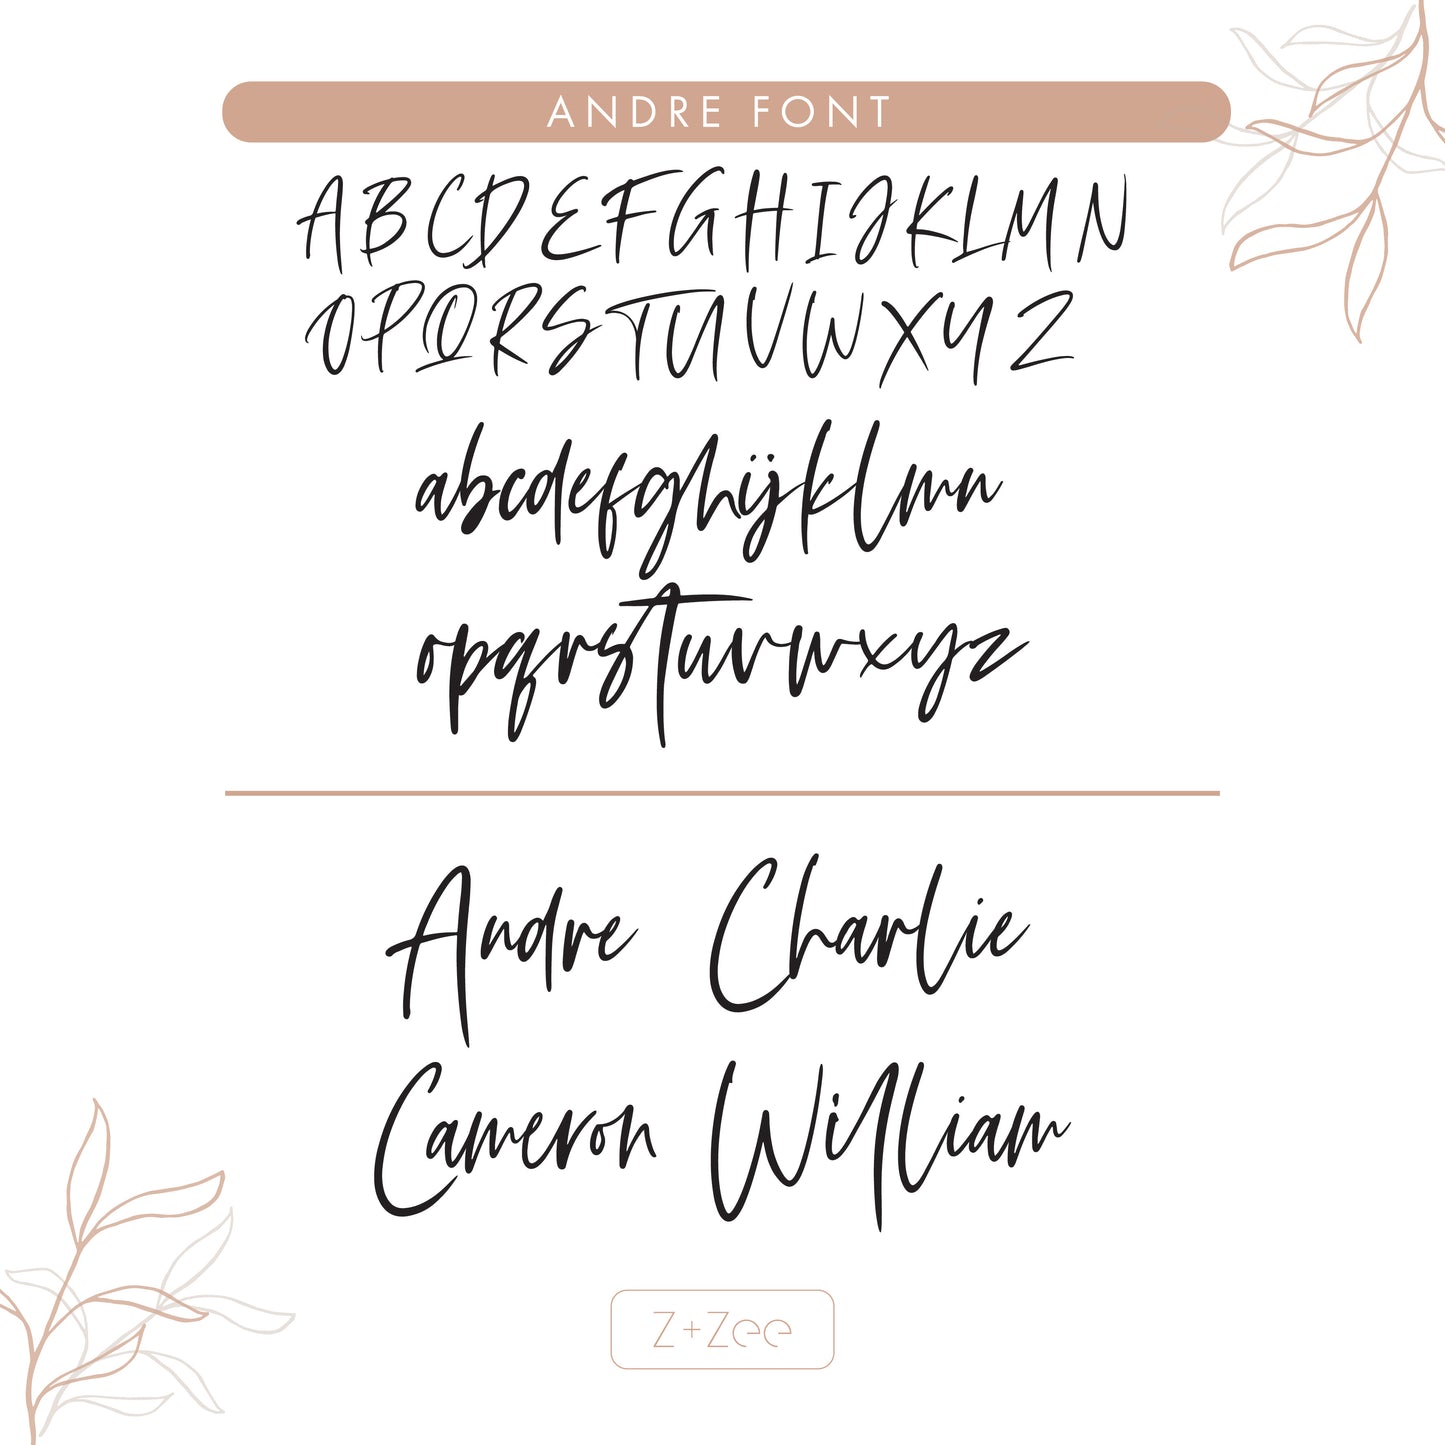 ANDRE FONT
ABCDEFGHIJKLMN
OPQRSTUVWXYZ
abcdefghijklmn
opqrstuvwxyz
Andre Charlie
Cameron William
Z+Zee